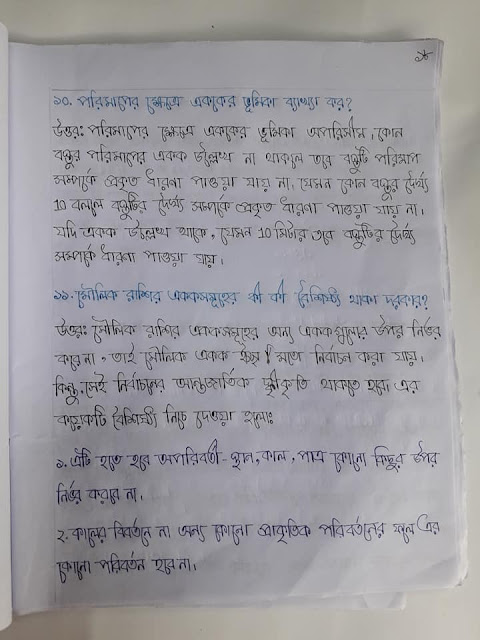 ১৮
১০. পরিমাপের ক্ষেত্রে এককের ভূমিকা ব্যাখ্যা কর?
উত্তর: পরিমাপের ক্ষেত্রে এককের ভূমিকা অপরিসীম, কোন
বস্তুর পরিমাপের একক উল্লেখ না থাকলে তবে বস্তুটি পরিমাপ
সম্পর্কে প্রকৃত ধারণা পাওয়া যায় না, যেমন কোন বস্তুর দৈর্ঘ্য
10 বললে বস্তুটির দৈর্ঘ্য সম্পর্কে প্রকৃত ধারণা পাওয়া যায় না।
যদি একক উল্লেখ থাকে, যেমন 10 মিটার তবে বস্তুটির দৈর্ঘ্য
সম্পর্কে ধারণা পাওয়া যায়।
১১. মৌলিক রাশির এককসমূহের কী কী বৈশিষ্ট্য থাকা দরকার?
উত্তর: মৌলিক রাশির এককসমূহের অন্য এককগুলোর উপর নির্ভর
করে না, তাই মৌলিক একক ইচ্ছা মতো নির্বাচন করা যায়।
কিন্তু, সেই নির্বাচনের আন্তর্জাতিক স্বীকৃতি থাকতে হবে। এর
কয়েকটি বৈশিষ্ট্য নিচে দেওয়া হলো:
১. এটি হতে হবে অপরিবর্তী - স্থান, কাল, পাত্র কোনো কিছুর উপর
নির্ভর করবে না।
২. কালের বিবর্তনে না অন্য কোনো প্রাকৃতিক পরিবর্তনের ফলে এর
কোনো পরিবর্তন হবে না।